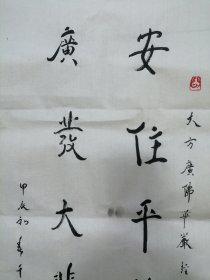 大方廣佛華嚴經
安住平
廣發大悲
甲辰初春千